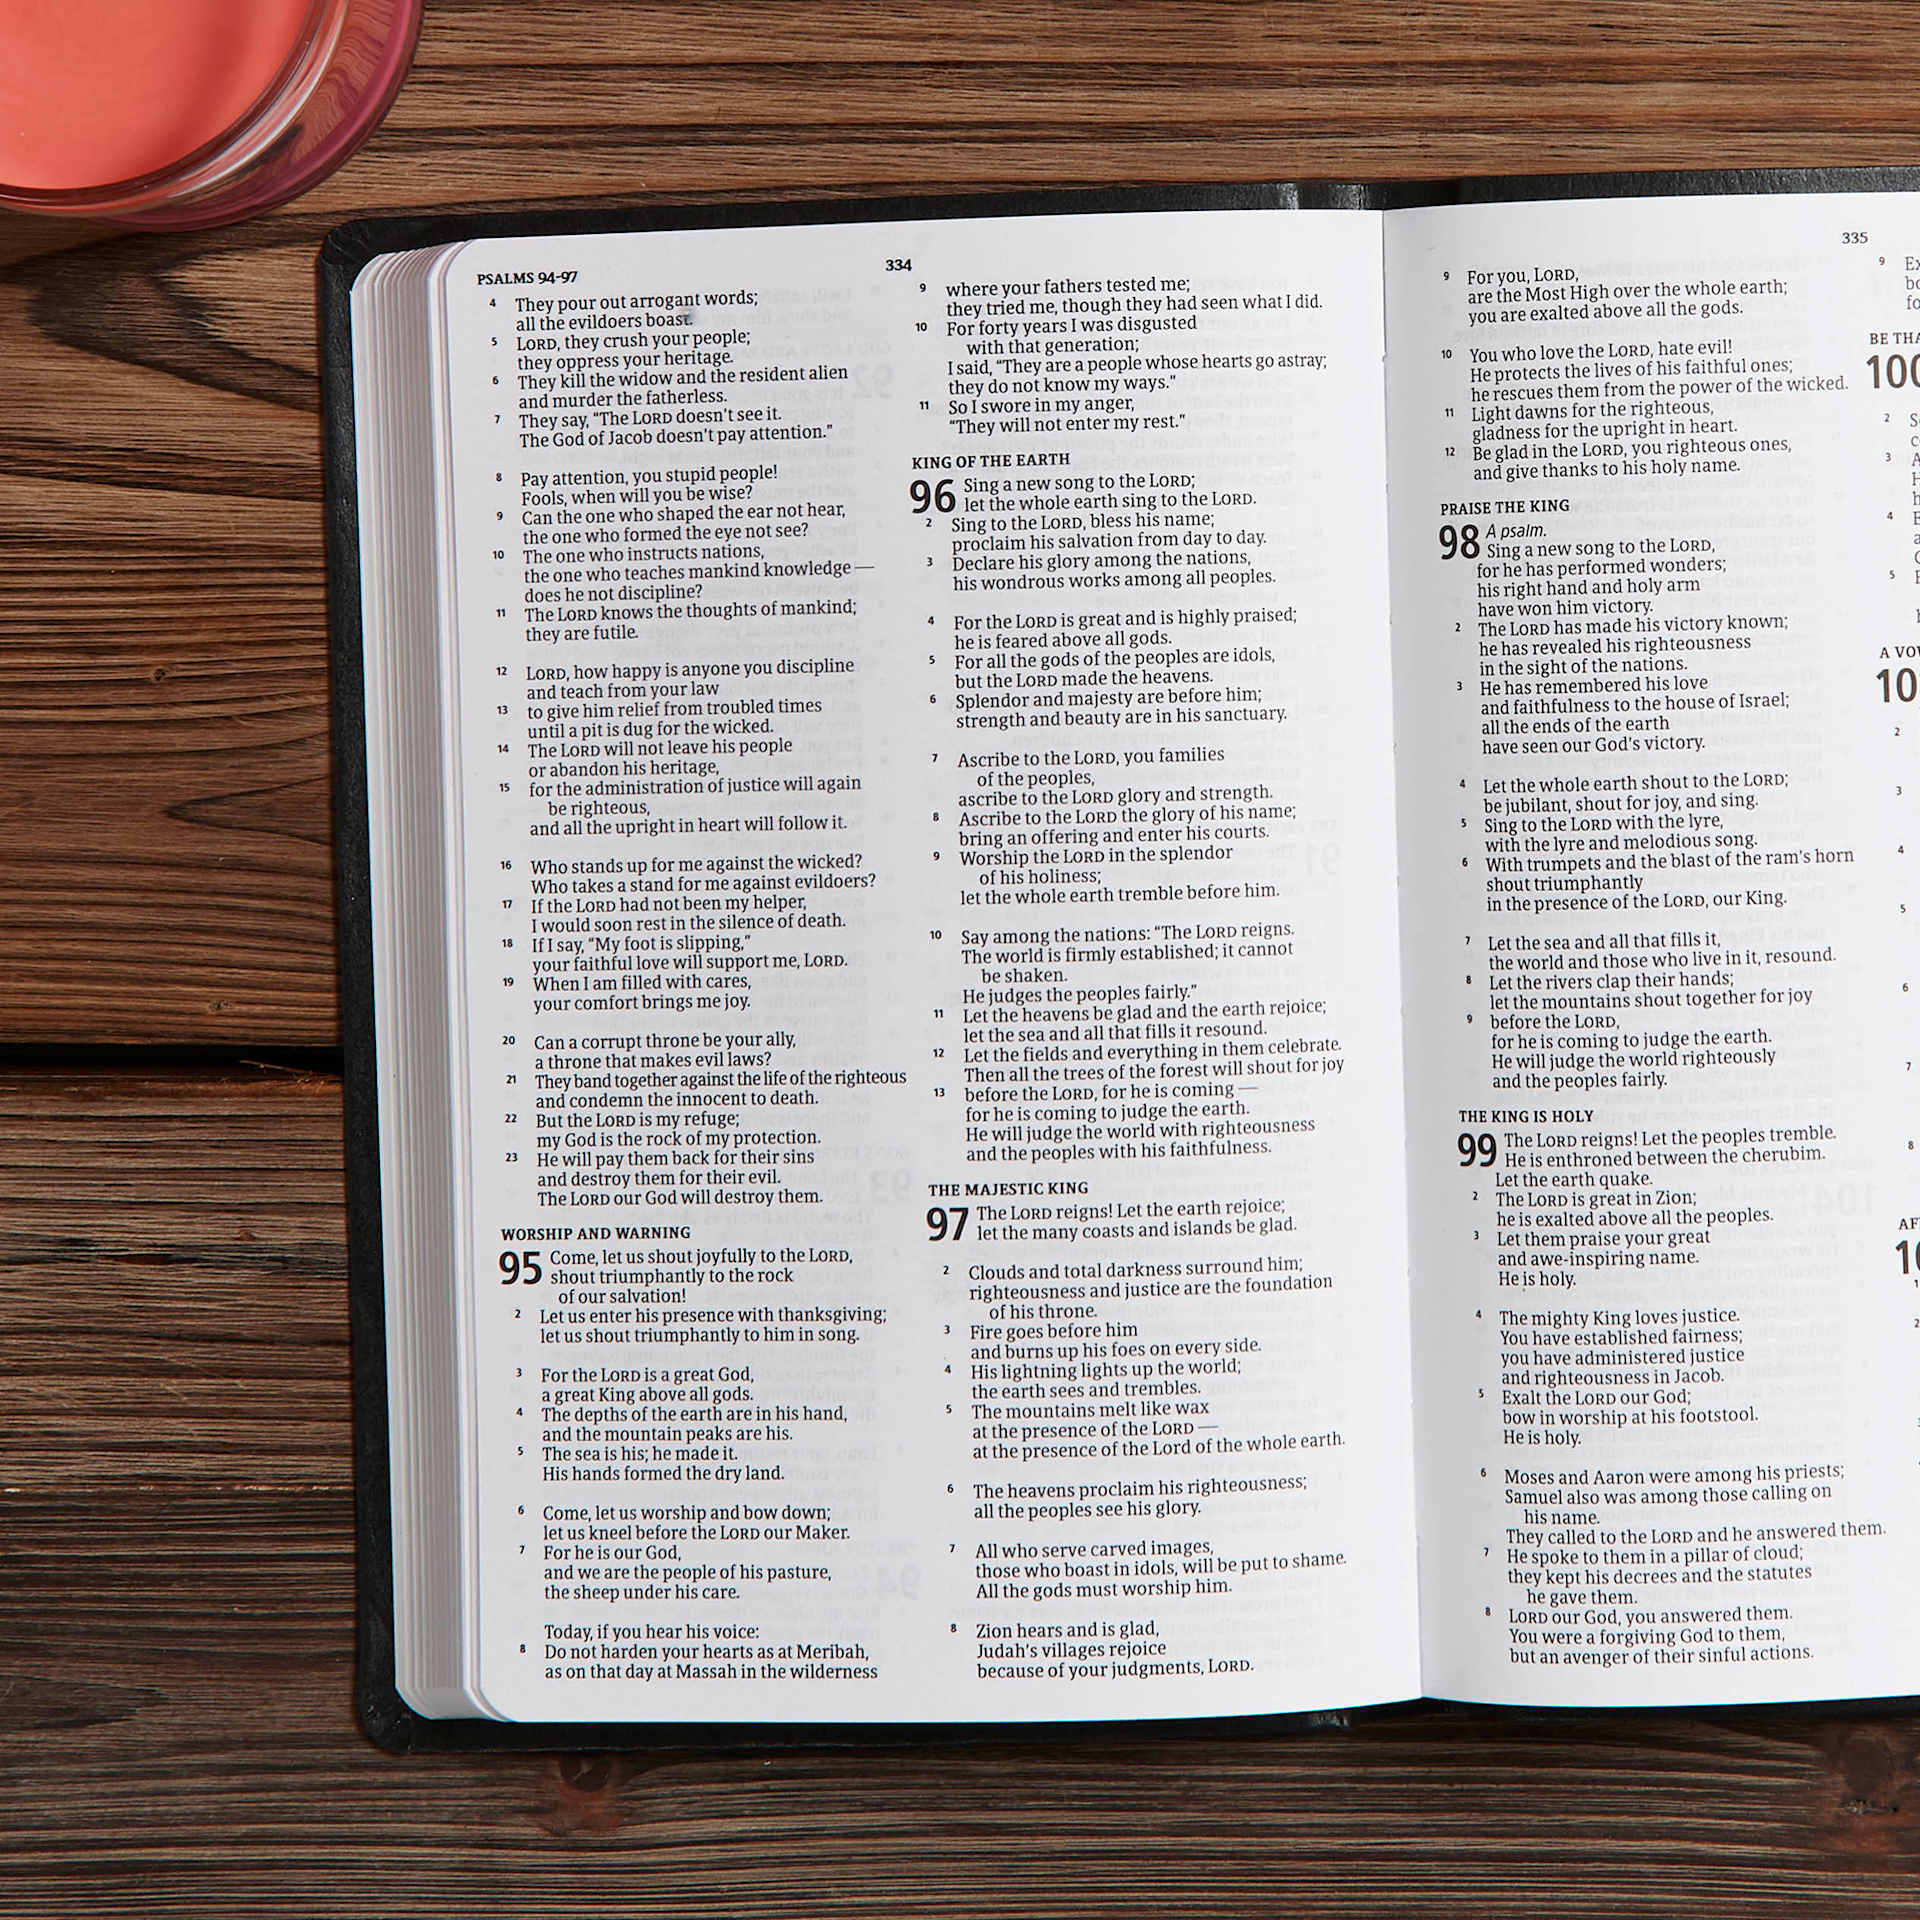 PSALMS 94-97
334
4 They pour out arrogant words;
all the evildoers boast.
5 LORD, they crush your people;
they oppress your heritage.
6 They kill the widow and the resident alien
and murder the fatherless.
7 They say, “The LORD doesn't see it.
The God of Jacob doesn't pay attention.”
8 Pay attention, you stupid people!
Fools, when will you be wise?
9 Can the one who shaped the ear not hear,
the one who formed the eye not see?
10 The one who instructs nations,
the one who teaches mankind knowledge —
does he not discipline?
11 The LORD knows the thoughts of mankind;
they are futile.
12 LORD, how happy is anyone you discipline
and teach from your law
13 to give him relief from troubled times
until a pit is dug for the wicked.
14 The LORD will not leave his people
or abandon his heritage,
15 for the administration of justice will again
be righteous,
and all the upright in heart will follow it.
16 Who stands up for me against the wicked?
Who takes a stand for me against evildoers?
17 If the LORD had not been my helper,
I would soon rest in the silence of death.
18 If I say, “My foot is slipping,”
your faithful love will support me, LORD.
19 When I am filled with cares,
your comfort brings me joy.
20 Can a corrupt throne be your ally,
a throne that makes evil laws?
21 They band together against the life of the righteous
and condemn the innocent to death.
22 But the LORD is my refuge;
my God is the rock of my protection.
23 He will pay them back for their sins
and destroy them for their evil.
The LORD our God will destroy them.
WORSHIP AND WARNING
95 Come, let us shout joyfully to the LORD,
shout triumphantly to the rock
of our salvation!
2 Let us enter his presence with thanksgiving;
let us shout triumphantly to him in song.
3 For the LORD is a great God,
a great King above all gods.
4 The depths of the earth are in his hand,
and the mountain peaks are his.
5 The sea is his; he made it.
His hands formed the dry land.
6 Come, let us worship and bow down;
let us kneel before the LORD our Maker.
7 For he is our God,
and we are the people of his pasture,
the sheep under his care.
Today, if you hear his voice:
8 Do not harden your hearts as at Meribah,
as on that day at Massah in the wilderness
9 where your fathers tested me;
they tried me, though they had seen what I did.
10 For forty years I was disgusted
with that generation;
I said, “They are a people whose hearts go astray;
they do not know my ways.”
11 So I swore in my anger,
“They will not enter my rest.”
KING OF THE EARTH
96 Sing a new song to the LORD;
let the whole earth sing to the LORD.
2 Sing to the LORD, bless his name;
proclaim his salvation from day to day.
3 Declare his glory among the nations,
his wondrous works among all peoples.
4 For the LORD is great and is highly praised;
he is feared above all gods.
5 For all the gods of the peoples are idols,
but the LORD made the heavens.
6 Splendor and majesty are before him;
strength and beauty are in his sanctuary.
7 Ascribe to the LORD, you families
of the peoples,
ascribe to the LORD glory and strength.
8 Ascribe to the LORD the glory of his name;
bring an offering and enter his courts.
9 Worship the LORD in the splendor
of his holiness;
let the whole earth tremble before him.
10 Say among the nations: “The LORD reigns.
The world is firmly established; it cannot
be shaken.
He judges the peoples fairly.”
11 Let the heavens be glad and the earth rejoice;
let the sea and all that fills it resound.
12 Let the fields and everything in them celebrate.
Then all the trees of the forest will shout for joy
13 before the LORD, for he is coming —
for he is coming to judge the earth.
He will judge the world with righteousness
and the peoples with his faithfulness.
THE MAJESTIC KING
97 The LORD reigns! Let the earth rejoice;
let the many coasts and islands be glad.
2 Clouds and total darkness surround him;
righteousness and justice are the foundation
of his throne.
3 Fire goes before him
and burns up his foes on every side.
4 His lightning lights up the world;
the earth sees and trembles.
5 The mountains melt like wax
at the presence of the LORD —
at the presence of the Lord of the whole earth.
6 The heavens proclaim his righteousness;
all the peoples see his glory.
7 All who serve carved images,
those who boast in idols, will be put to shame.
All the gods must worship him.
8 Zion hears and is glad,
Judah's villages rejoice
because of your judgments, LORD.
335
9 For you, LORD,
are the Most High over the whole earth;
you are exalted above all the gods.
10 You who love the LORD, hate evil!
He protects the lives of his faithful ones;
he rescues them from the power of the wicked.
11 Light dawns for the righteous,
gladness for the upright in heart.
12 Be glad in the LORD, you righteous ones,
and give thanks to his holy name.
PRAISE THE KING
98 A psalm.
Sing a new song to the LORD,
for he has performed wonders;
his right hand and holy arm
have won him victory.
2 The LORD has made his victory known;
he has revealed his righteousness
in the sight of the nations.
3 He has remembered his love
and faithfulness to the house of Israel;
all the ends of the earth
have seen our God's victory.
4 Let the whole earth shout to the LORD;
be jubilant, shout for joy, and sing.
5 Sing to the LORD with the lyre,
with the lyre and melodious song.
6 With trumpets and the blast of the ram's horn
shout triumphantly
in the presence of the LORD, our King.
7 Let the sea and all that fills it,
the world and those who live in it, resound.
8 Let the rivers clap their hands;
let the mountains shout together for joy
9 before the LORD,
for he is coming to judge the earth.
He will judge the world righteously
and the peoples fairly.
THE KING IS HOLY
99 The LORD reigns! Let the peoples tremble.
He is enthroned between the cherubim.
Let the earth quake.
2 The LORD is great in Zion;
he is exalted above all the peoples.
3 Let them praise your great
and awe-inspiring name.
He is holy.
4 The mighty King loves justice.
You have established fairness;
you have administered justice
and righteousness in Jacob.
5 Exalt the LORD our God;
bow in worship at his footstool.
He is holy.
6 Moses and Aaron were among his priests;
Samuel also was among those calling on
his name.
They called to the LORD and he answered them.
7 He spoke to them in a pillar of cloud;
they kept his decrees and the statutes
he gave them.
8 LORD our God, you answered them.
You were a forgiving God to them,
but an avenger of their sinful actions.
9
BE
2
3
4
5
A
2
3
4
5
6
7
8